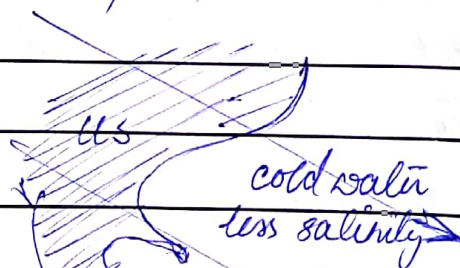 US
cold water
less salinity